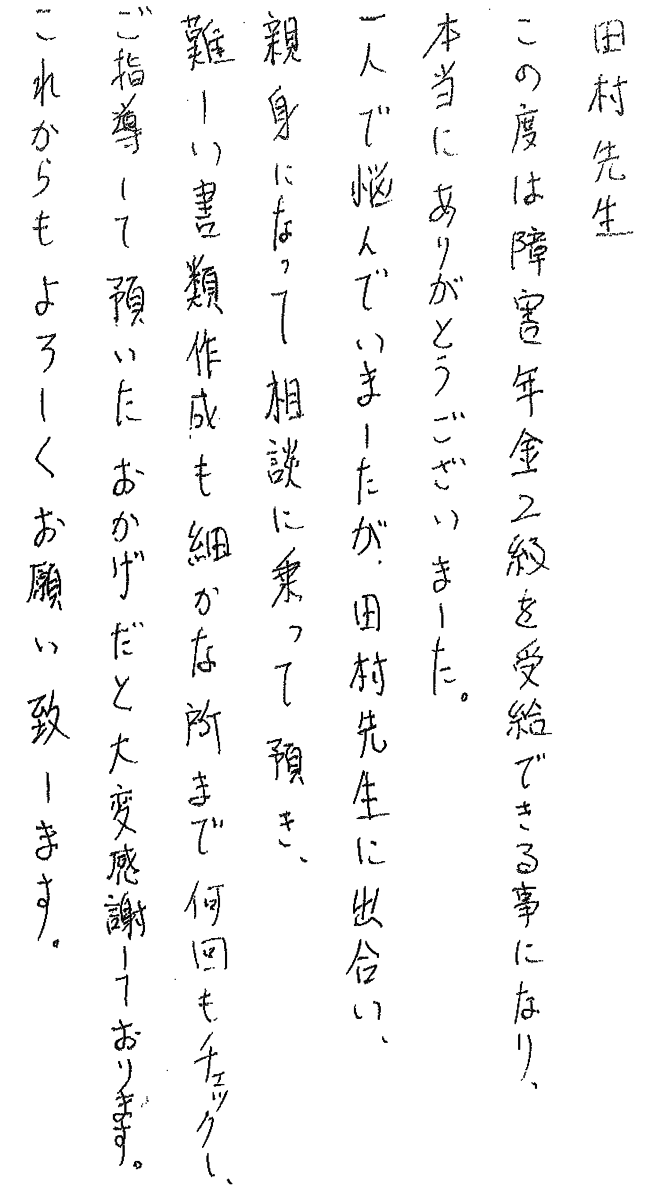 田村先生
この度は障害年金2級を受給できる事になり、
本当にありがとうございました。
一人で悩んでいましたが、田村先生に出合い、
親身になって相談に乗って預き、
難しい書類作成も細かな所まで何回もチェックし、
ご指導して預いたおかげだと大変感謝しております。
これからもよろしくお願い致します。